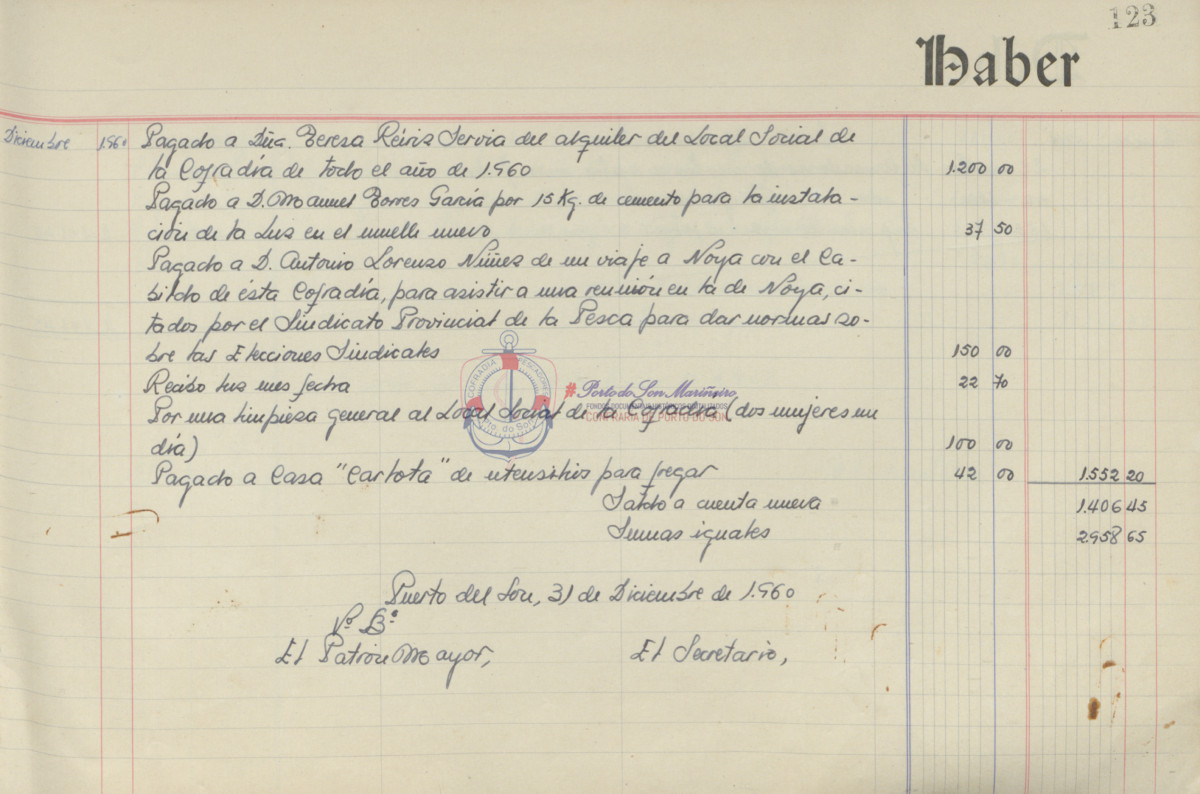 123
Haber
Diciembre 1.960 Pagado a Dña. Teresa Reiriz Servia del alquiler del Local Social de
la Cofradía de todo el año de 1.960 1.200 00
Pagado a D. Manuel Torres García por 15 Kg. de cemento para la instala-
ción de la Luz en el muelle nuevo 37 50
Pagado a D. Antonio Lorenzo Núñez de un viaje a Noya con el Ca-
bildo de ésta Cofradía, para asistir a una reunión en la de Noya, ci-
tados por el Sindicato Provincial de la Pesca para dar normas so-
bre las Elecciones Sindicales 150 00
Recibo luz mes fecha 22 70
Por una limpieza general al Local Social de la Cofradía (dos mujeres un
día) 100 00
Pagado a Casa "Carlota" de utensilios para fregar 42 00 1.552 20
Saldo a cuenta nueva 1.406 45
Sumas iguales 2.958 65
Puerto del Son, 31 de Diciembre de 1.960
Vº Bº
El Patrón Mayor, El Secretario,
COFRADIA PESCADORES
Pto. do Son
#Porto do Son Mariñeiro
CONFRARÍA DE PORTO DO SON